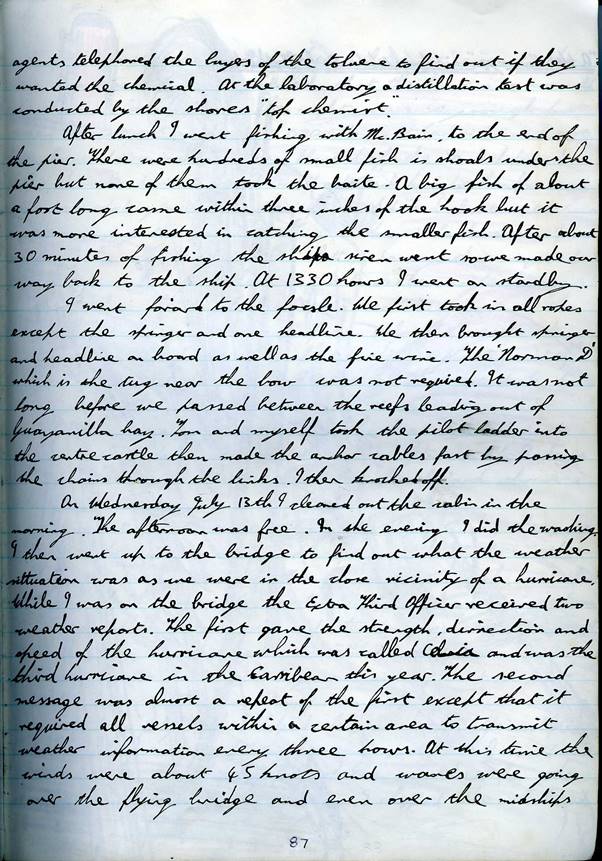 agents telephoned the buyers of the toluene to find out if they
wanted the chemical. At the laboratory a distillation test was
conducted by the shores "top chemist".
After lunch I went fishing with Mr. Bain, to the end of
the pier. There were hundreds of small fish is shoals under the
pier but none of them took the baite. A big fish of about
a foot long came within three inches of the hook but it
was more interested in catching the smaller fish. After about
30 minutes of fishing the ships siren went so we made our
way back to the ship. At 1330 hours I went on standby.
I went forard to the focsle. We first took in all ropes
except the springer and one headline. We then brought springer
and headline on board as well as the fire wire. The Norman D'
which is the tug near the bow was not required. It was not
long before we passed between the reefs leading out of
Guayanilla bay. Tom and myself took the pilot ladder into
the centrecastle then made the anchor cables fast by passing
the chains through the links. I then knocked off.
On Wednesday July 13th I cleaned out the cabin in the
morning. The afternoon was free. In the evening I did the washing.
I then went up to the bridge to find out what the weather
sittuation was as we were in the close vicinity of a hurricane.
While I was on the bridge the Extra Third Officer received two
weather reports. The first gave the strength, dirrection and
speed of the hurricane which was called Celia and was the
third hurricane in the Carribean this year. The second
message was almost a repeat of the first except that it
required all vessels within a certain area to transmit
weather information every three hours. At this time the
winds were about 45 knots and waves were going
over the flying bridge and even over the midships
87